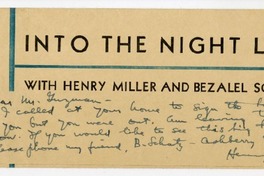 INTO THE NIGHT L
WITH HENRY MILLER AND BEZALEL SC
Mr. Guzman—
I called at your home to sign the
you but you were out. Am leaving
now. If you would like to see this big
please phone my friend, B. Schatz - Ashberry
Hen